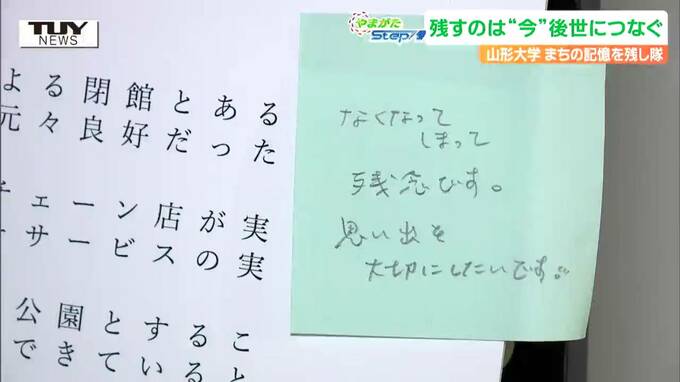 TUY
NEWS
やまがた
Step!
残すのは“今”後世につなぐ
山形大学 まちの記憶を残し隊
よる閉館とある
元々良好だった
チェーン店が実
サービスの実
公園とするこ
できていると
なくなって
しまって
残念です。
思い出を
大切にしたいです。